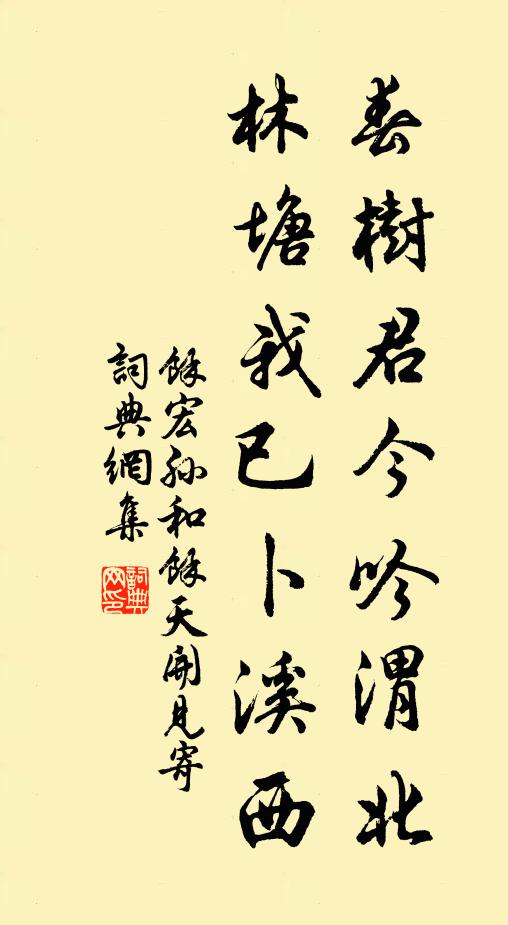 春樹君今吟渭北
林塘我已卜溪西
餘宏孫和餘天開見寄
詞典網集
詞典